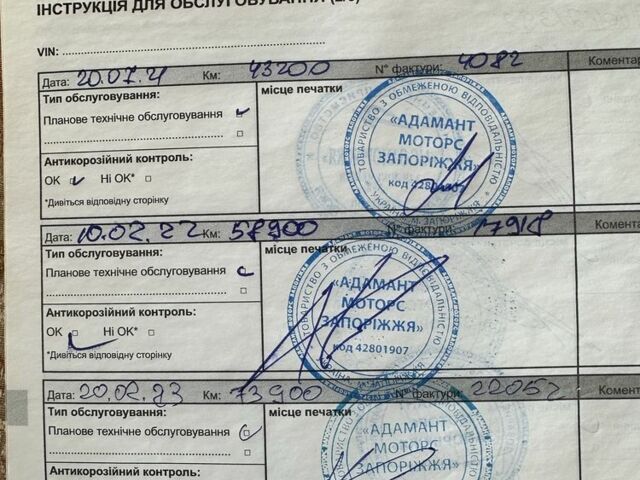 ІНСТРУКЦІЯ ДЛЯ ОБСЛУГОВУВАННЯ
VIN:
Дата: 20.07.21 Км: 43200 N° фактури: 4082 Коментар
Тип обслуговування:
Планове технічне обслуговування:
Антикорозійний контроль:
OK Ні OK*
*Дивіться відповідну сторінку
місце печатки
ТОВАРИСТВО З ОБМЕЖЕНОЮ ВІДПОВІДАЛЬНІСТЮ
«АДАМАНТ
МОТОРС
ЗАПОРІЖЖЯ»
код 42801907
Дата: 10.02.22 Км: 58900 N° фактури: 17918 Комента
Тип обслуговування:
Планове технічне обслуговування:
Антикорозійний контроль:
OK Ні OK*
*Дивіться відповідну сторінку
місце печатки
ТОВАРИСТВО З ОБМЕЖЕНОЮ ВІДПОВІДАЛЬНІСТЮ
«АДАМАНТ
МОТОРС
ЗАПОРІЖЖЯ»
код 42801907
Дата: 20.02.23 Км: 73900 N° фактури: 22052 Комент
Тип обслуговування:
Планове технічне обслуговування:
Антикорозійний контроль:
місце печатки
«АДАМАНТ
МОТОРС
ЗАПОРІЖЖЯ»